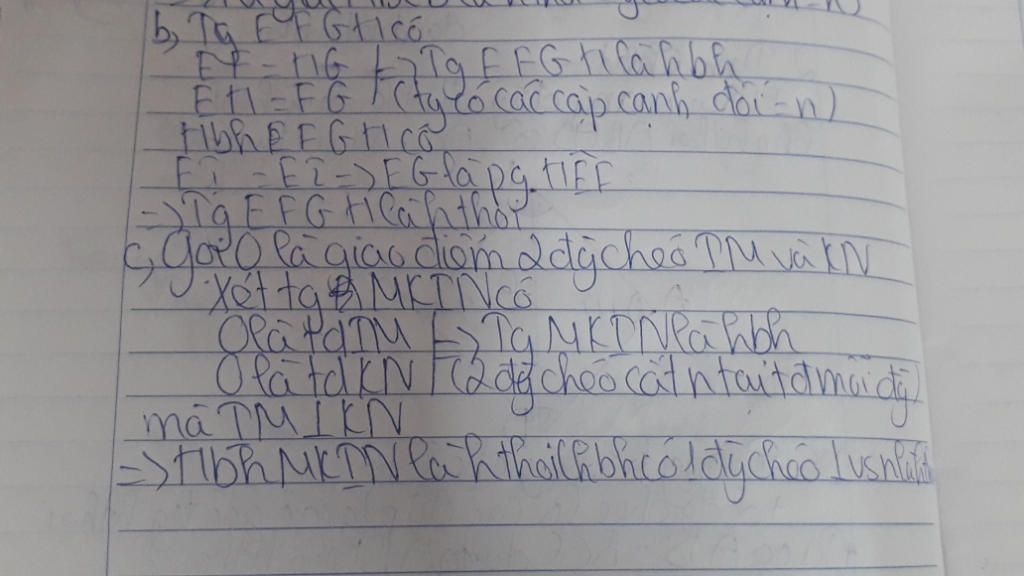 b, Tg EFGH có
EF = HG } => Tg EFGH là hbh
EH = FG (tg có các cặp cạnh đối = n)
Hbh EFGH có
E1 = E2 => EG là pg HEF
=> Tg EFGH là h thoi
c, gọi O là giao điểm 2 đg chéo IM và KN
Xét tg MKIN có
O là tđ IM } => Tg MKIN là hbh
O là tđ KN (2 đg chéo cắt n tại tđ mỗi đg)
mà IM ⊥ KN
=> Hbh MKIN là h thoi (hbh có 1 đg chéo ⊥ vs n là